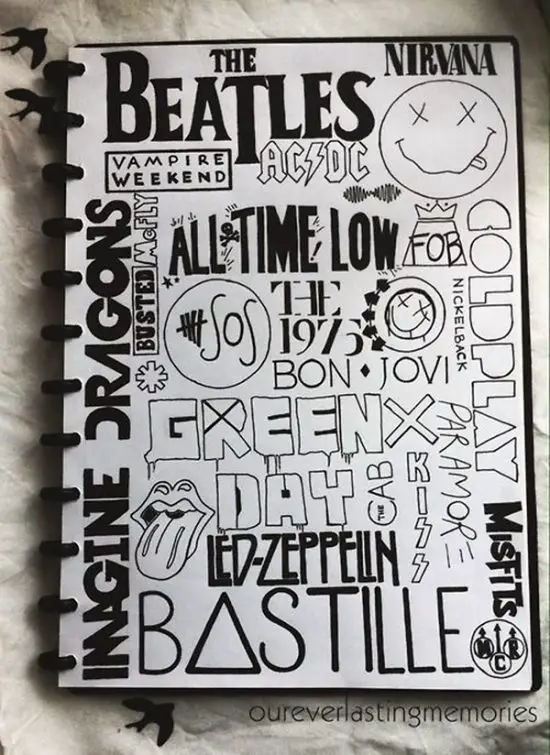 THE
BEATLES
NIRVANA
VAMPIRE
WEEKEND
AC/DC
McFLY
BUSTED
ALL TIME LOW
FOB
COLDPLAY
NICKELBACK
SOS
THE
1975
BON ♦ JOVI
IMAGINE DRAGONS
GREEN
DAY
PARAMORE
THE CAB
KISS
LED-ZEPPELIN
MISFITS
BASTILLE
MCR
oureverlastingmemories